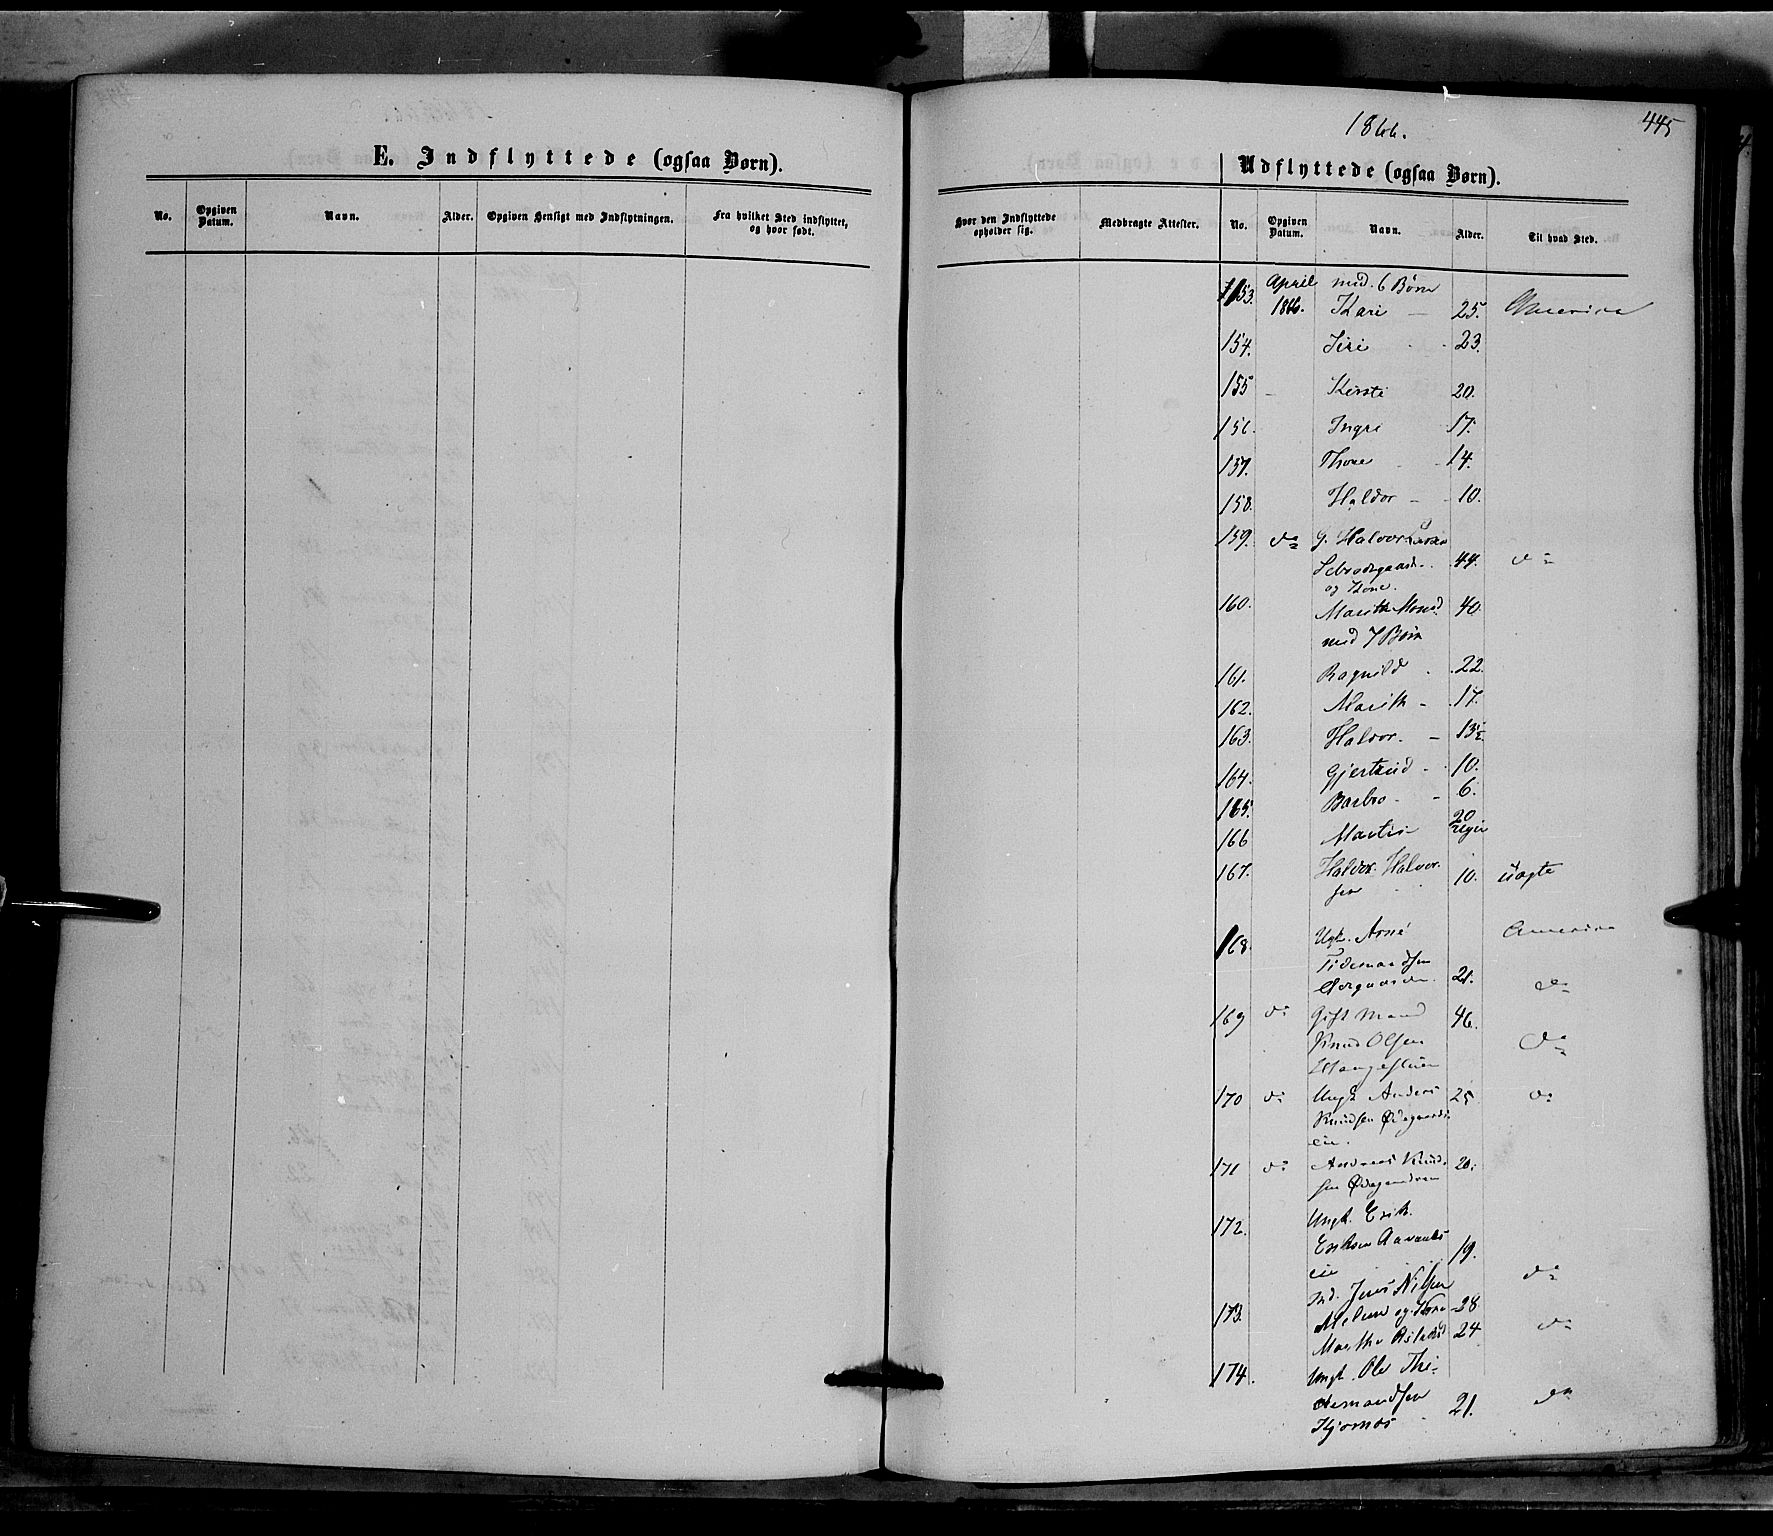 1866.
445
E. Indflyttede (ogsaa Børn).
Udflyttede (ogsaa Børn).
No. Opgiven Datum. Navn. Alder. Opgiven Hensigt med Indflytningen. Fra hvilket Sted indflyttet, og hvor født.
Hvor den Indflyttede opholder sig. Medbragte Attester. No. Opgiven Datum. Navn. Alder. Til hvad Sted.
April med 6 Børn
153. 1866. Kari 25. America
154. Siri 23.
155 Kirsti 20.
156. Ingri 17.
157. Thone 14.
158. Haldor 10.
159. do G. Halvor
44. do
og Kone.
160. Marith 40.
med 7 Børn
161. Ragnild 22.
162. Marith 17.
163. Halvor. 13½
164. Gjertrud 10.
165. Barbro 6.
166 Martin 20 uger
167. Haldor Halvor- 10.
sen
168. Ungk. Arne America
Tidemandsen
21. do
169 do Gift Mand 46.
Knud Olsen do
170 do Ungk Anders 25 do
Knudsen Ødegaards
eie.
171 do Andreas Knud- 20.
sen
172. Ungk. Erik
Eriksen
eie 19.
Jens Nilsen do
173. og Kone 28
Marthe 24 do
174. Ungk. Ole Thi-
demandsen 21. do